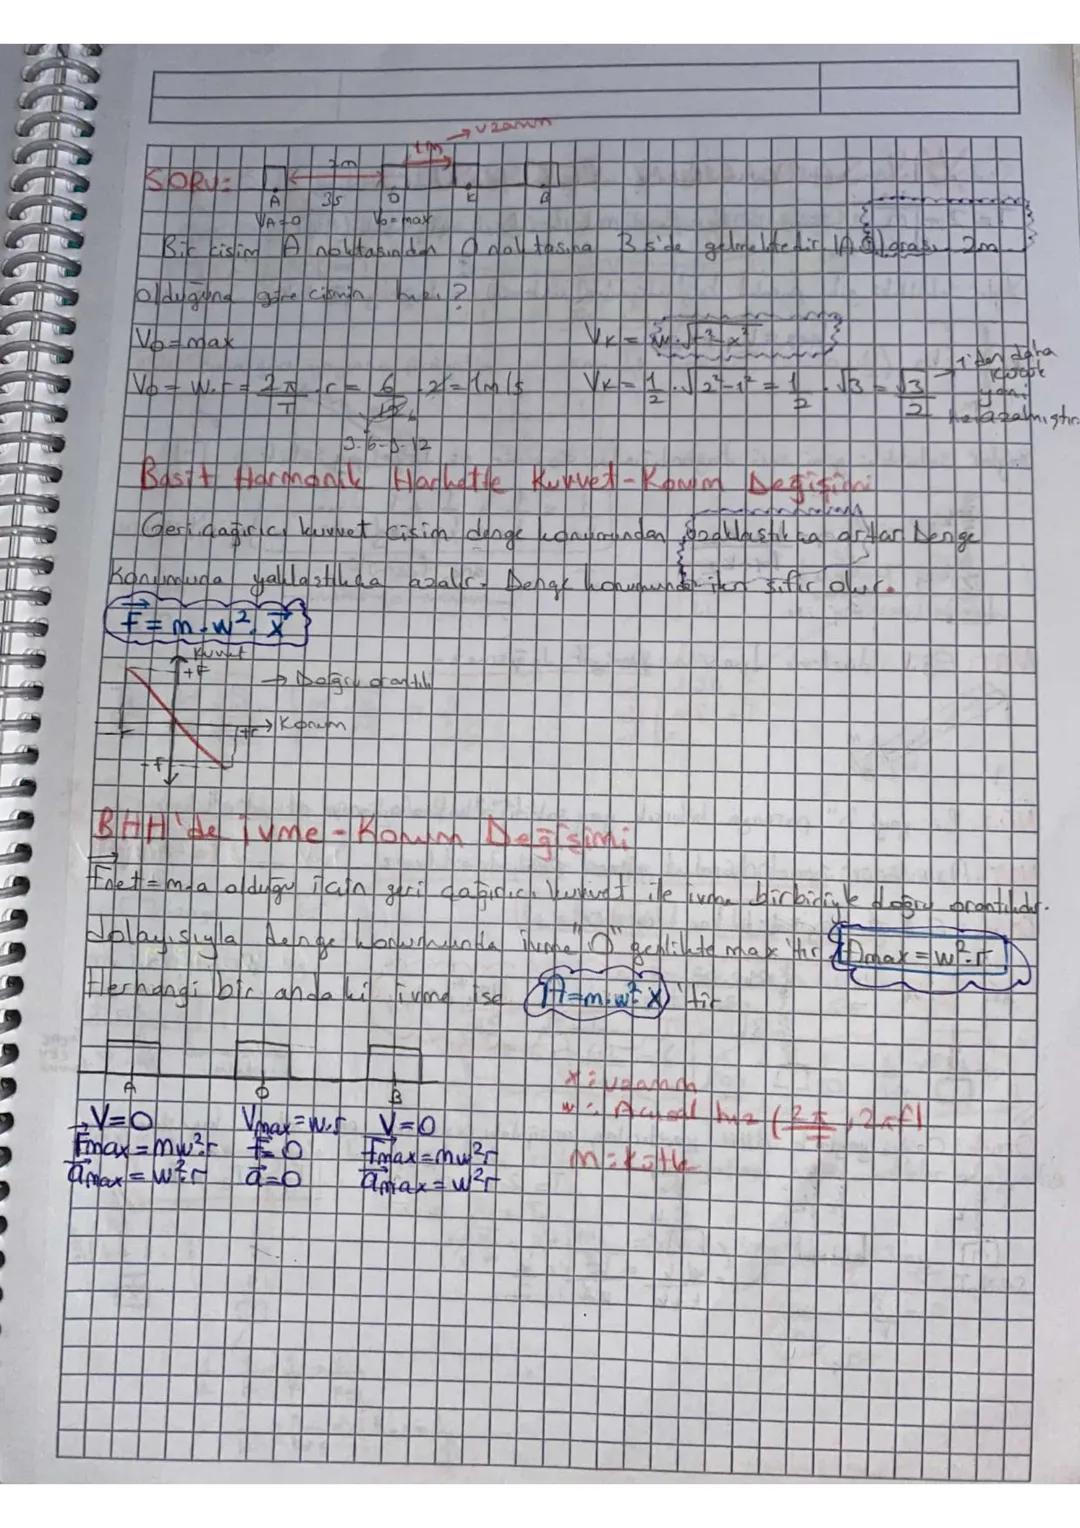 → uzanım
1m
SORU:
2m
A 3s O K B
VA=0 Vo=max
Bir cisim A noktasından O noktasına 3 s'de gelmektedir. IAOI arası 2m
olduğuna göre cismin hızı?
Vo=max
VK = w.√r²-x²
Vo = w.r = 2π/T .r = 6/12 .2 = 1m/s
VK = 1/2 . √2²-1² = 1/2 . √3 = √3/2 → 1'den daha küçük yani hız azalmıştır.
3.6-9-12
Basit Harmonik Harkette Kuvvet-Konum Değişimi
Geri çağırıcı kuvvet cisim denge konumundan uzaklaştıkça artar Denge
Konumuna yaklaştıkça azalır. Denge konumunda iken sıfır olur.
F = m.w².x
Kuvvet
+F
→ Doğru orantılı
-r +r → Konum
-F
BHH'de İvme-Konum Değişimi
Fnet=m.a olduğu için geri çağırıcı kuvvet ile ivme birbiriyle doğru orantılıdır.
Dolayısıyla denge konumunda ivme "0" genlikte max'tır amax=w².r
Herhangi bir andaki ivme ise A=m.w².x 'tir
A O B
V=0 Vmax=w.r V=0
Fmax=mw².r F=0 Fmax=mw²r
amax=w².r a=0 amax=w²r
x: uzanım
w: Açısal hız (2π/T, 2πf)
m: Kütle